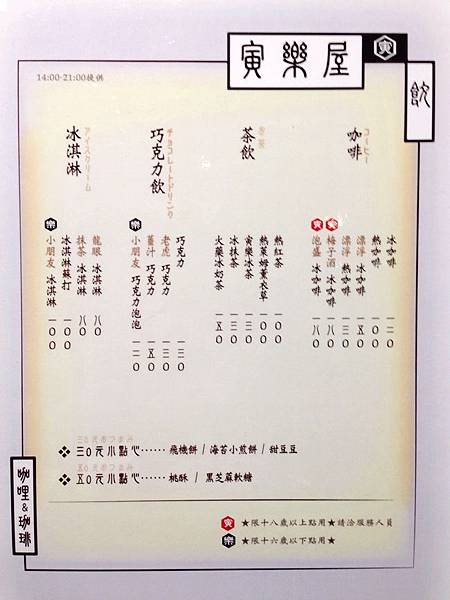 寅樂屋
寅
飲
14:00-21:00提供
コーヒー
咖啡
冰咖啡 一二〇
熱咖啡 一〇〇
漂浮 冰咖啡 一五〇
漂浮 熱咖啡 一三〇
寅 梅子酒 冰咖啡 一八〇
寅 泡盛 冰咖啡 一八〇
茶飲
熱紅茶 一〇〇
熱萊姆薰衣草 一〇〇
寅樂冰茶 一三〇
冰抹茶 一三〇
火藥冰奶茶 一五〇
チョコレートドリンク
巧克力飲
巧克力 一三〇
老虎 巧克力 一三〇
薑汁 巧克力 一五〇
樂 小朋友 巧克力泡泡 一二〇
アイスクリーム
冰淇淋
龍眼 冰淇淋 八〇
抹茶 冰淇淋 八〇
冰淇淋蘇打 一〇〇
樂 小朋友 冰淇淋 一〇〇
三〇元小點心⋯⋯ 飛機餅 / 海苔小煎餅 / 甜豆豆
五〇元小點心⋯⋯ 桃酥 / 黑芝麻軟糖
咖哩&珈琲
寅 ★限十八歲以上點用★請洽服務人員
樂 ★限十六歲以下點用★